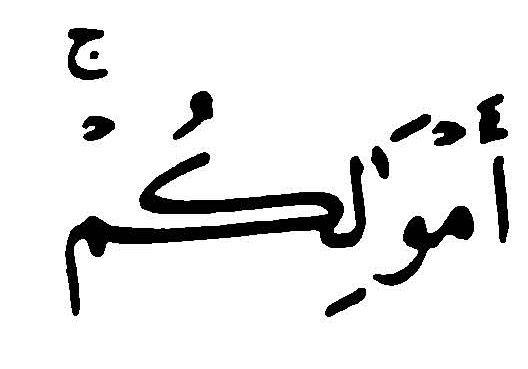 أَمۡوَٰلِكُمۡۚ